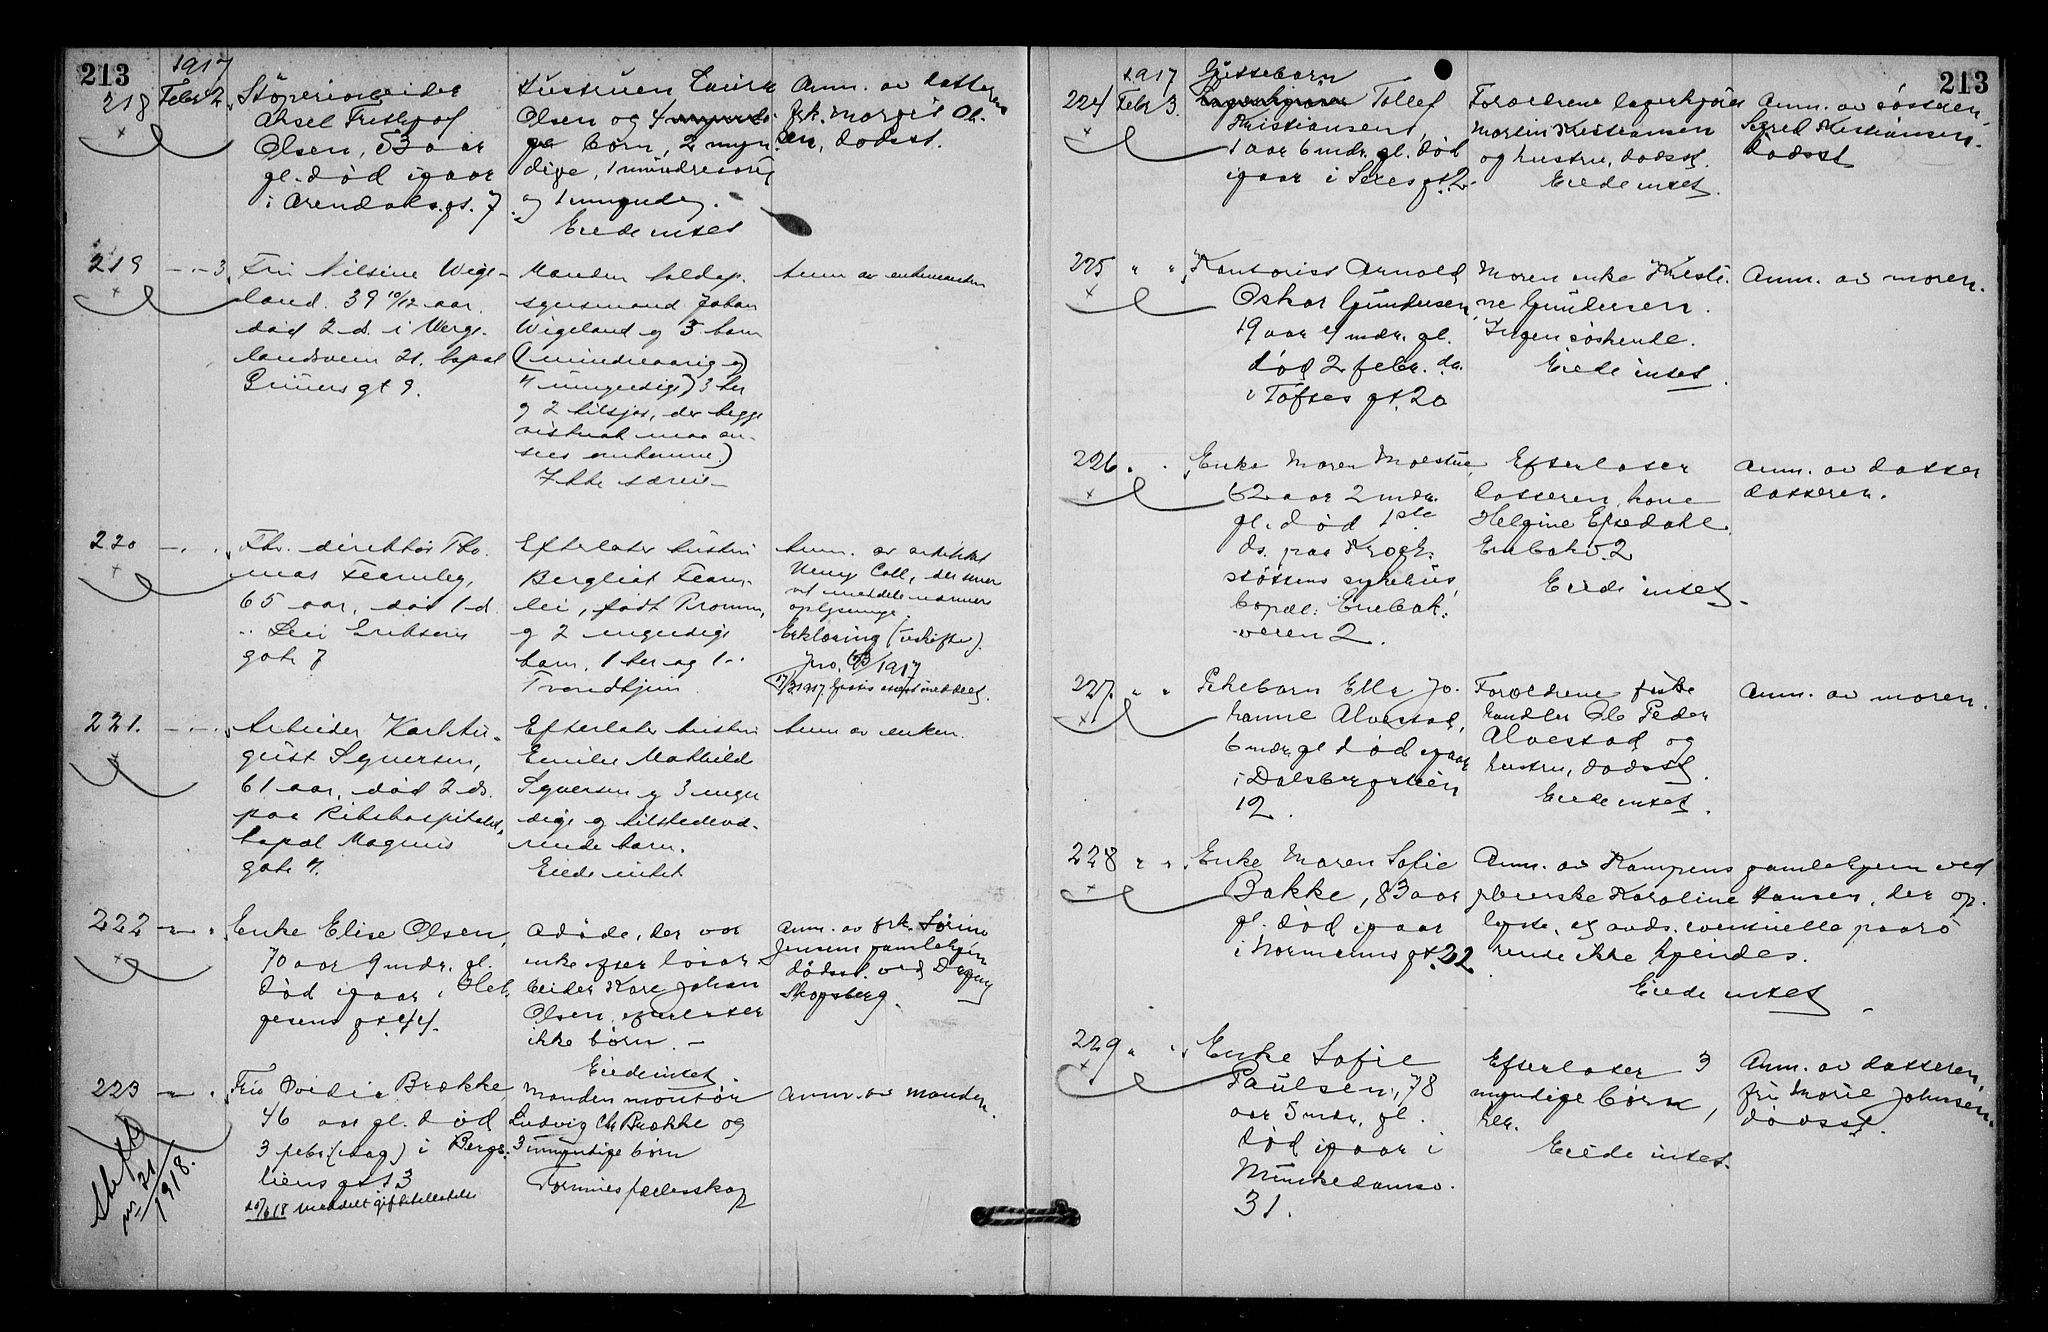 213
1917
218 Febr 2. Støperiarbeider
Aksel Frithjof
Olsen, 53 aar
gl. død igaar
i Arendals gt. 7
Hustruen Laura
Olsen og 4
børn, 2 myn
dige, 1 mindreaarig
og 1 umyndig.
Eiede intet
Anm. av datteren
frk. Margit Ol-
sen, dødsst.
219 - - 3. Fru Nilsine Wige-
land. 39 10/12 aar.
død 2 ds. i Verge-
landsveien 21. bopæl
Grüners gt 9.
Manden
Johan
Wigeland og 5 barn
(1 mindreaarig og
4 umyndige) 3 her
og 2 tilsjøs, der begge
maa an-
sees omkomne.)
Ikke særeie
Anm av enkemanden
220 - . . Fhv. direktør Tho-
mas Fearnley,
65 aar, død 1 ds.
i Leiv Eriksens
gate 7
Efterlater hustru
Bergliot Fearn-
ley, født Bromm,
og 2 umyndige
barn, 1 her og 1 i
Trondhjem
Anm. av arkitekt
Henry Coll, der senere
vil meddele nærmere
oplysninger.
Erklæring (uskifte).
Jno. 63/1917
17/3 1917. Gratis attest meddelt.
221. - - . Arbeider Karl Au-
gust Syversen,
61 aar, død 2 ds.
paa Rikshospitalet,
bopæl Magnus
gate 4.
Efterlater hustru
Emilie Mathilde
Syversen og 3 myn
dige og tilstedevæ-
rende barn.
Eiede intet
Anm av enken.
222 - " Enke Elise Olsen,
70 aar 9 mdr. gl.
død igaar i Hel-
gesens gt 44.
Afdøde, der var
enke efter løsar-
beider Kare Johan
Olsen, efterlater
ikke børn. -
Eiede intet.
Anm. av frk. Sørine
Jensens gamlehjem
dødsst. ved Dagny
Skogsberg.
223 - " Fru Ovidia Brække
46 aar gl. død
3 febr. (idag) i Bergs-
liens gt 13
20/6 18 meddelt skifteattest
Skifte
nr. 21
1918.
Manden montør
Ludvig Chr Brække og
3 umyndige børn
Formuesfælesskap
Anm. av manden.
213
1917
224 Febr 3. Guttebarn
Lagerkjører Tollef
Kristiansen,
1 aar 6 mdr. gl. død
igaar i Seves gt. 2.
Forældrene lagerkjører
Martin Kristiansen
og hustru, dødsst.
Eiede intet.
Anm. av søsteren
Sigrid Kristiansen.
dødsst
225 " " Kontorist Arnold
Oskar Gundersen,
19 aar 4 mdr. gl.
død 2 febr. ds.
i Toftes gt. 20
Moren enke Kristi-
ne Gundersen.
Ingen søskende.
Eiede intet.
Anm. av moren.
226. . Enke Maren Moestue
62 aar 2 mdr.
gl. død 1ste
ds. paa Krogh-
støttens sykehus,
bopæl: Enebak-
veien 2.
Efterlater
datteren, kone
Helgine Efsedahl
Enebakv. 2
Eiede intet.
Anm. av datter
datteren.
227. " " Pikebarn Ella Jo-
hanne Alvestad,
6 mdr. gl død igaar
i Dalsbergstien
12.
Forældrene fiske
handler Ole Peder
Alvestad og
hustru, dødsst.
Eiede intet.
Anm. av moren.
228 " " Enke Maren Sofie
Bakke, 83 aar
gl. død igaar
i Normanns gt. 32
Anm. av Kampens gamlehjem ved
pleierske Karoline Hansen, der op-
lyste, at avds. eventuelle paarø
rende ikke kjendes.
Eiede intet.
229 " " Enke Sofie
Paulsen, 78
aar 5 mdr. gl.
død igaar i
Munkedamsv.
31.
Efterlater 3
myndige børn,
her.
Eiede intet.
Anm. av datteren,
fru Marie Johnsen.
dødsst.